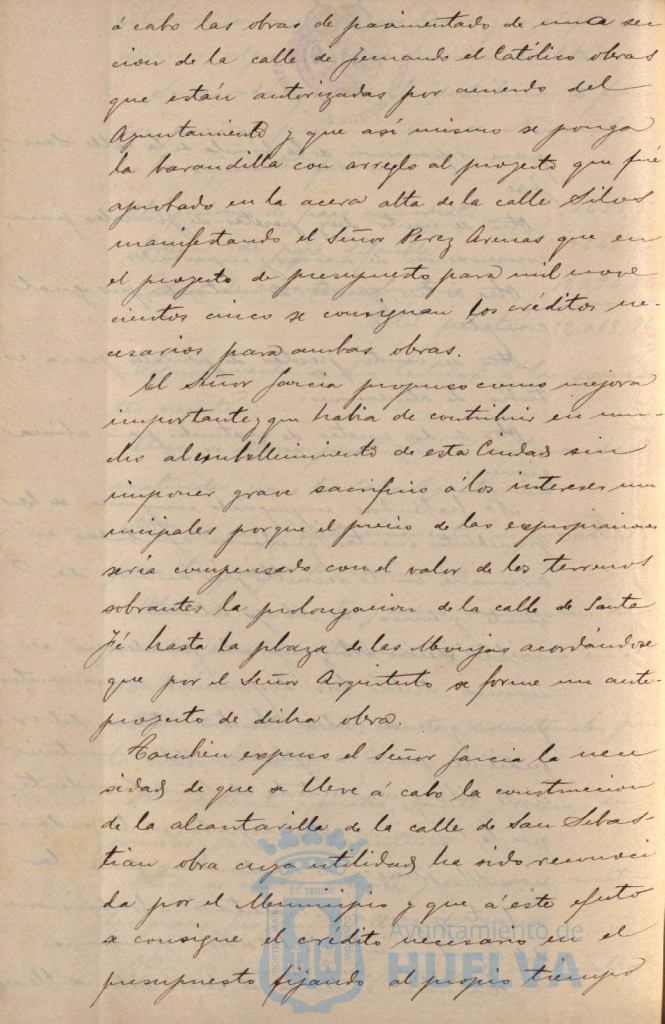 á cabo las obras de pavimentado de una sec
cion de la calle de Fernando el Católico obras
que están autorizadas por acuerdo del
Ayuntamiento y que así mismo se ponga
la barandilla con arreglo al proyecto que fué
aprobado en la acera alta de la calle Silos
manifestando el Señor Perez Arenas que en
el proyecto de presupuesto para mil nove
cientos cinco se consignan los créditos ne-
cesarios para ambas obras.
El Señor Garcia propuso como mejora
importante y que habia de contribuir en mu-
cho al embellecimiento de esta Ciudad sin
imponer grave sacrificio á los intereses mu
nicipales porque el precio de las expropiaciones
sería compensado con el valor de los terrenos
sobrantes la prolongacion de la calle de Santa
Fé hasta la plaza de las Monjas acordándose
que por el Señor Arquitecto se forme un ante-
proyecto de dicha obra.
Tambien expuso el Señor Garcia la nece
sidad de que se lleve á cabo la construccion
de la alcantarilla de la calle de San Sebas-
tian obra cuya utilidad ha sido reconoci
da por el Municipio y que á este efecto
se consigne el crédito necesario en el
presupuesto fijando al propio tiempo
Ayuntamiento de
HUELVA